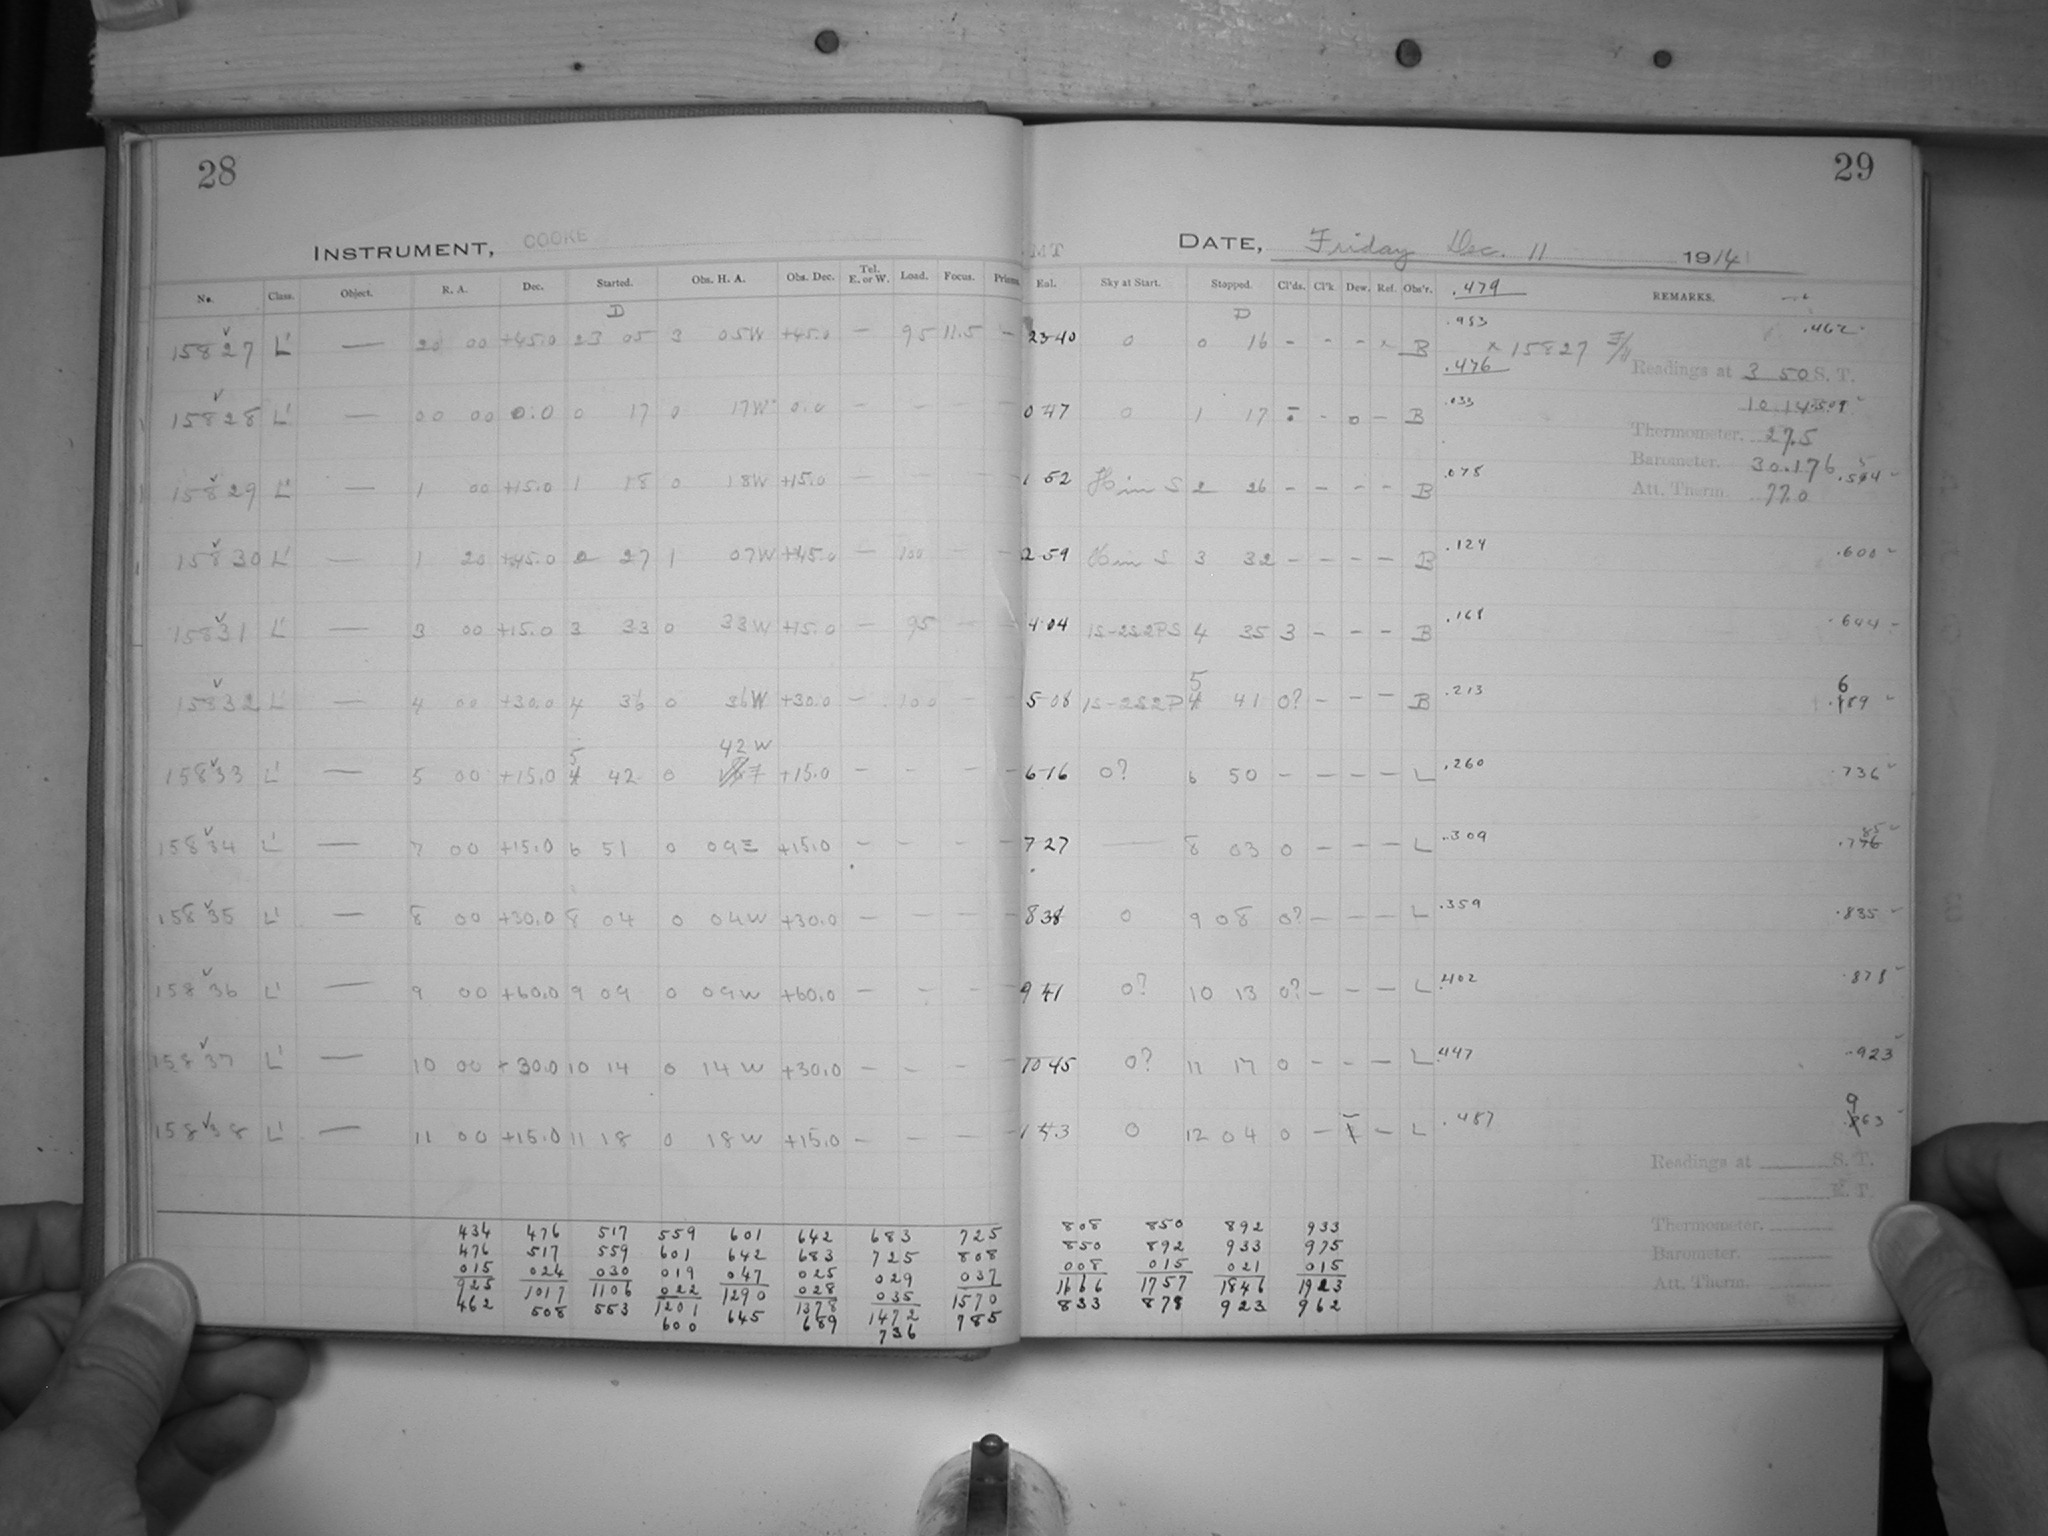 28
29
INSTRUMENT, COOKE
DATE, Friday Dec. 11 1914
No. Class. Object. R. A. Dec. Started. Obs. H. A. Obs. Dec. Tel. E. or W. Load. Focus. Sky at Start. Stopped. Cl'ds. Cl'k Dew. Ref. Obs'r. .479 REMARKS.
D D .953 .462
15827 L' — 20 00 +45.0 23 05 3 05W +45.0 — 95 11.5 — 23 40 0 0 16 - - - x B x 15827
.476 Readings at 3 50 S. T.
15828 L' — 00 00 0.0 0 17 0 17W 0.0 — - - - 0 47 0 1 17 - - 0 - B .033
Thermometer. 27.5
Barometer. 30.176
15829 L' — 1 00 +15.0 1 18 0 18W +15.0 — - - - 1 52 H in S 2 26 - - - - B .078
Att. Therm. 77.0
15830 L' — 1 20 +45.0 2 27 1 07W +45.0 — 100 - - 2 59 H in S 3 32 - - - - B .124 .600
15831 L' — 3 00 +15.0 3 33 0 33W +15.0 — 95 - - 4 04 1S-2S2PS 4 35 3 - - - B .168 .644
15832 L' — 4 00 +30.0 4 36 0 36W +30.0 — 100 - - 5 08 1S-2S2P 5 41 0? - - - B .213 .689
15833 L' — 5 00 +15.0 5 42 0 42W +15.0 — - - - 6 16 0? 6 50 - - - - L .260 .736
15834 L' — 7 00 +15.0 6 51 0 09E +15.0 — - - - 7 27 — 8 03 0 - - - L .309 .785
15835 L' — 8 00 +30.0 8 04 0 04W +30.0 — - - - 8 38 0 9 08 0? - - - L .359 .835
15836 L' — 9 00 +60.0 9 09 0 09W +60.0 — - - 9 41 0? 10 13 0? - - - L .402 .878
15837 L' — 10 00 +30.0 10 14 0 14W +30.0 — - - - 10 45 0? 11 17 0 - - - L .447 .923
15838 L' — 11 00 +15.0 11 18 0 18W +15.0 — - - - 0 12 04 0 - - - L .487 .963
Readings at S. T.
Thermometer.
Barometer.
Att. Therm.
434 476 517 559 601 642 683 725 808 850 892 933
476 517 559 601 642 683 725 808 850 892 933 975
015 024 030 019 047 025 029 037 008 015 021 015
925 1017 1106 022 1290 028 035 1570 1666 1757 1846 1923
462 508 553 1201 645 1378 1472 785 833 878 923 962
600 689 736